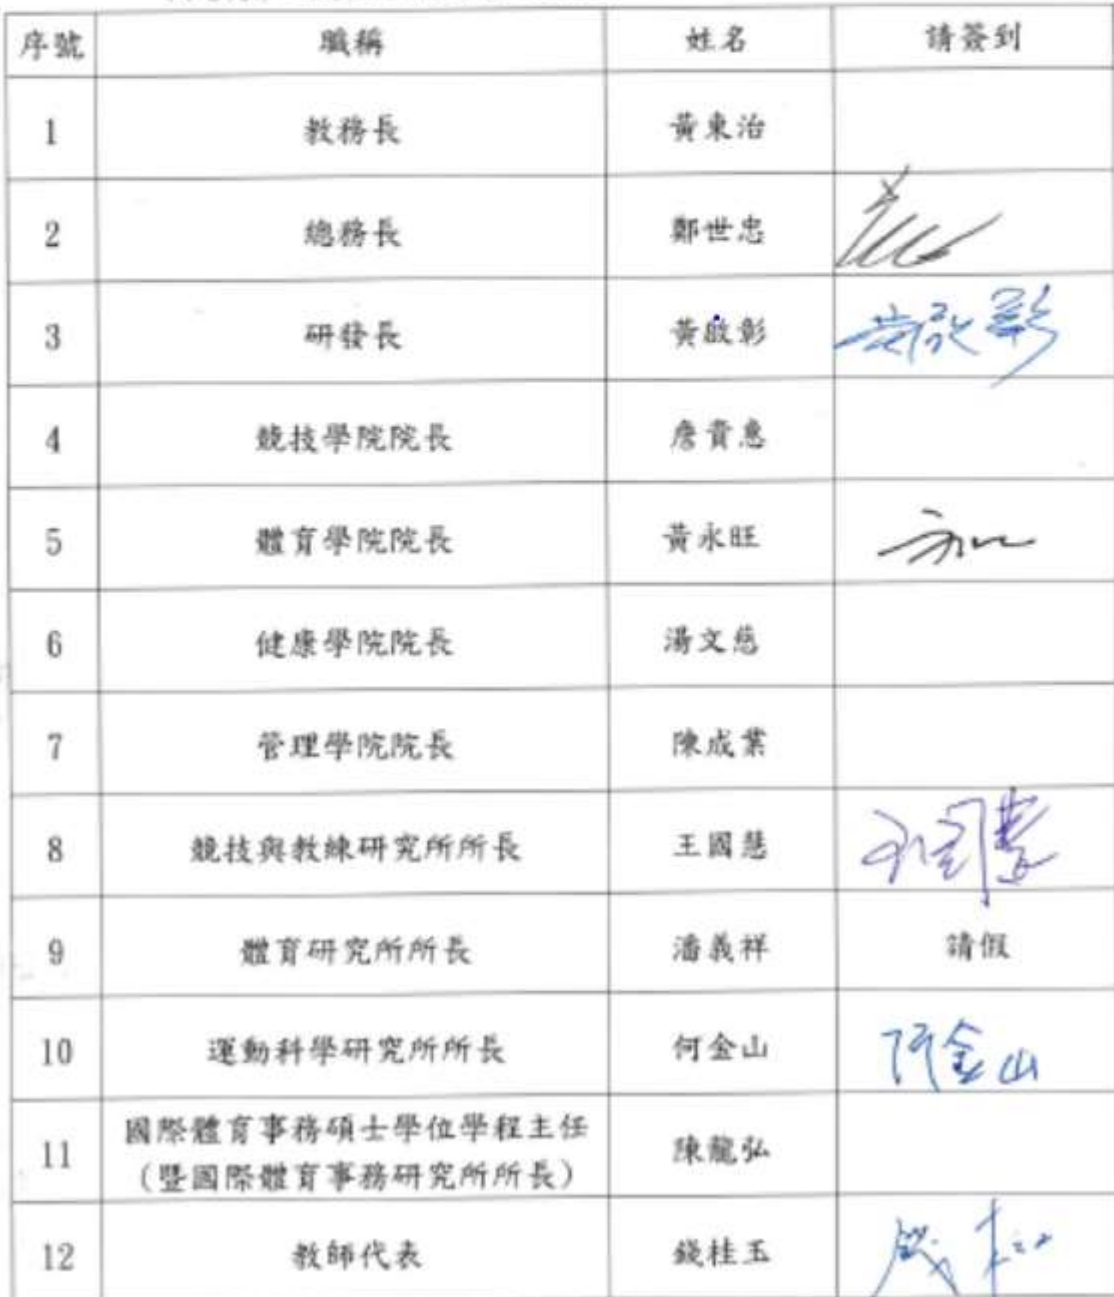 序號 職稱 姓名 請簽到
1 教務長 黃東治
2 總務長 鄭世忠
3 研發長 黃啟彰 黃啟彰
4 競技學院院長 詹貴惠
5 體育學院院長 黃永旺
6 健康學院院長 湯文慈
7 管理學院院長 陳成業
8 競技與教練研究所所長 王國慧 王國慧
9 體育研究所所長 潘義祥 請假
10 運動科學研究所所長 何金山 何金山
11 國際體育事務碩士學位學程主任
(暨國際體育事務研究所所長) 陳龍弘
12 教師代表 錢桂玉